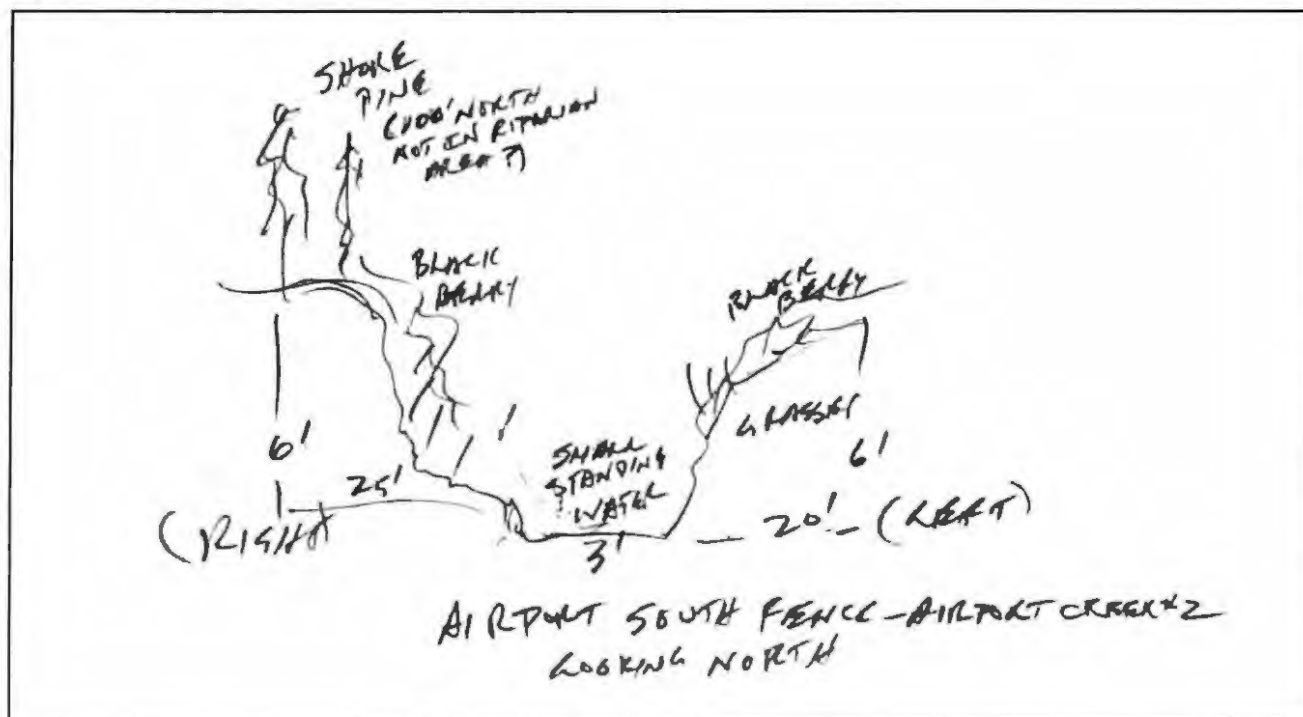 SHORE
PINE
(100' NORTH
NOT IN RIPARIAN
AREA ?)
BLACK
BERRY
BLACK
BERRY
GRASSES
6'
25'
(RIGHT)
SMALL
STANDING
WATER
3'
6'
20' (LEFT)
AIRPORT SOUTH FENCE - AIRPORT CREEK #2
LOOKING NORTH